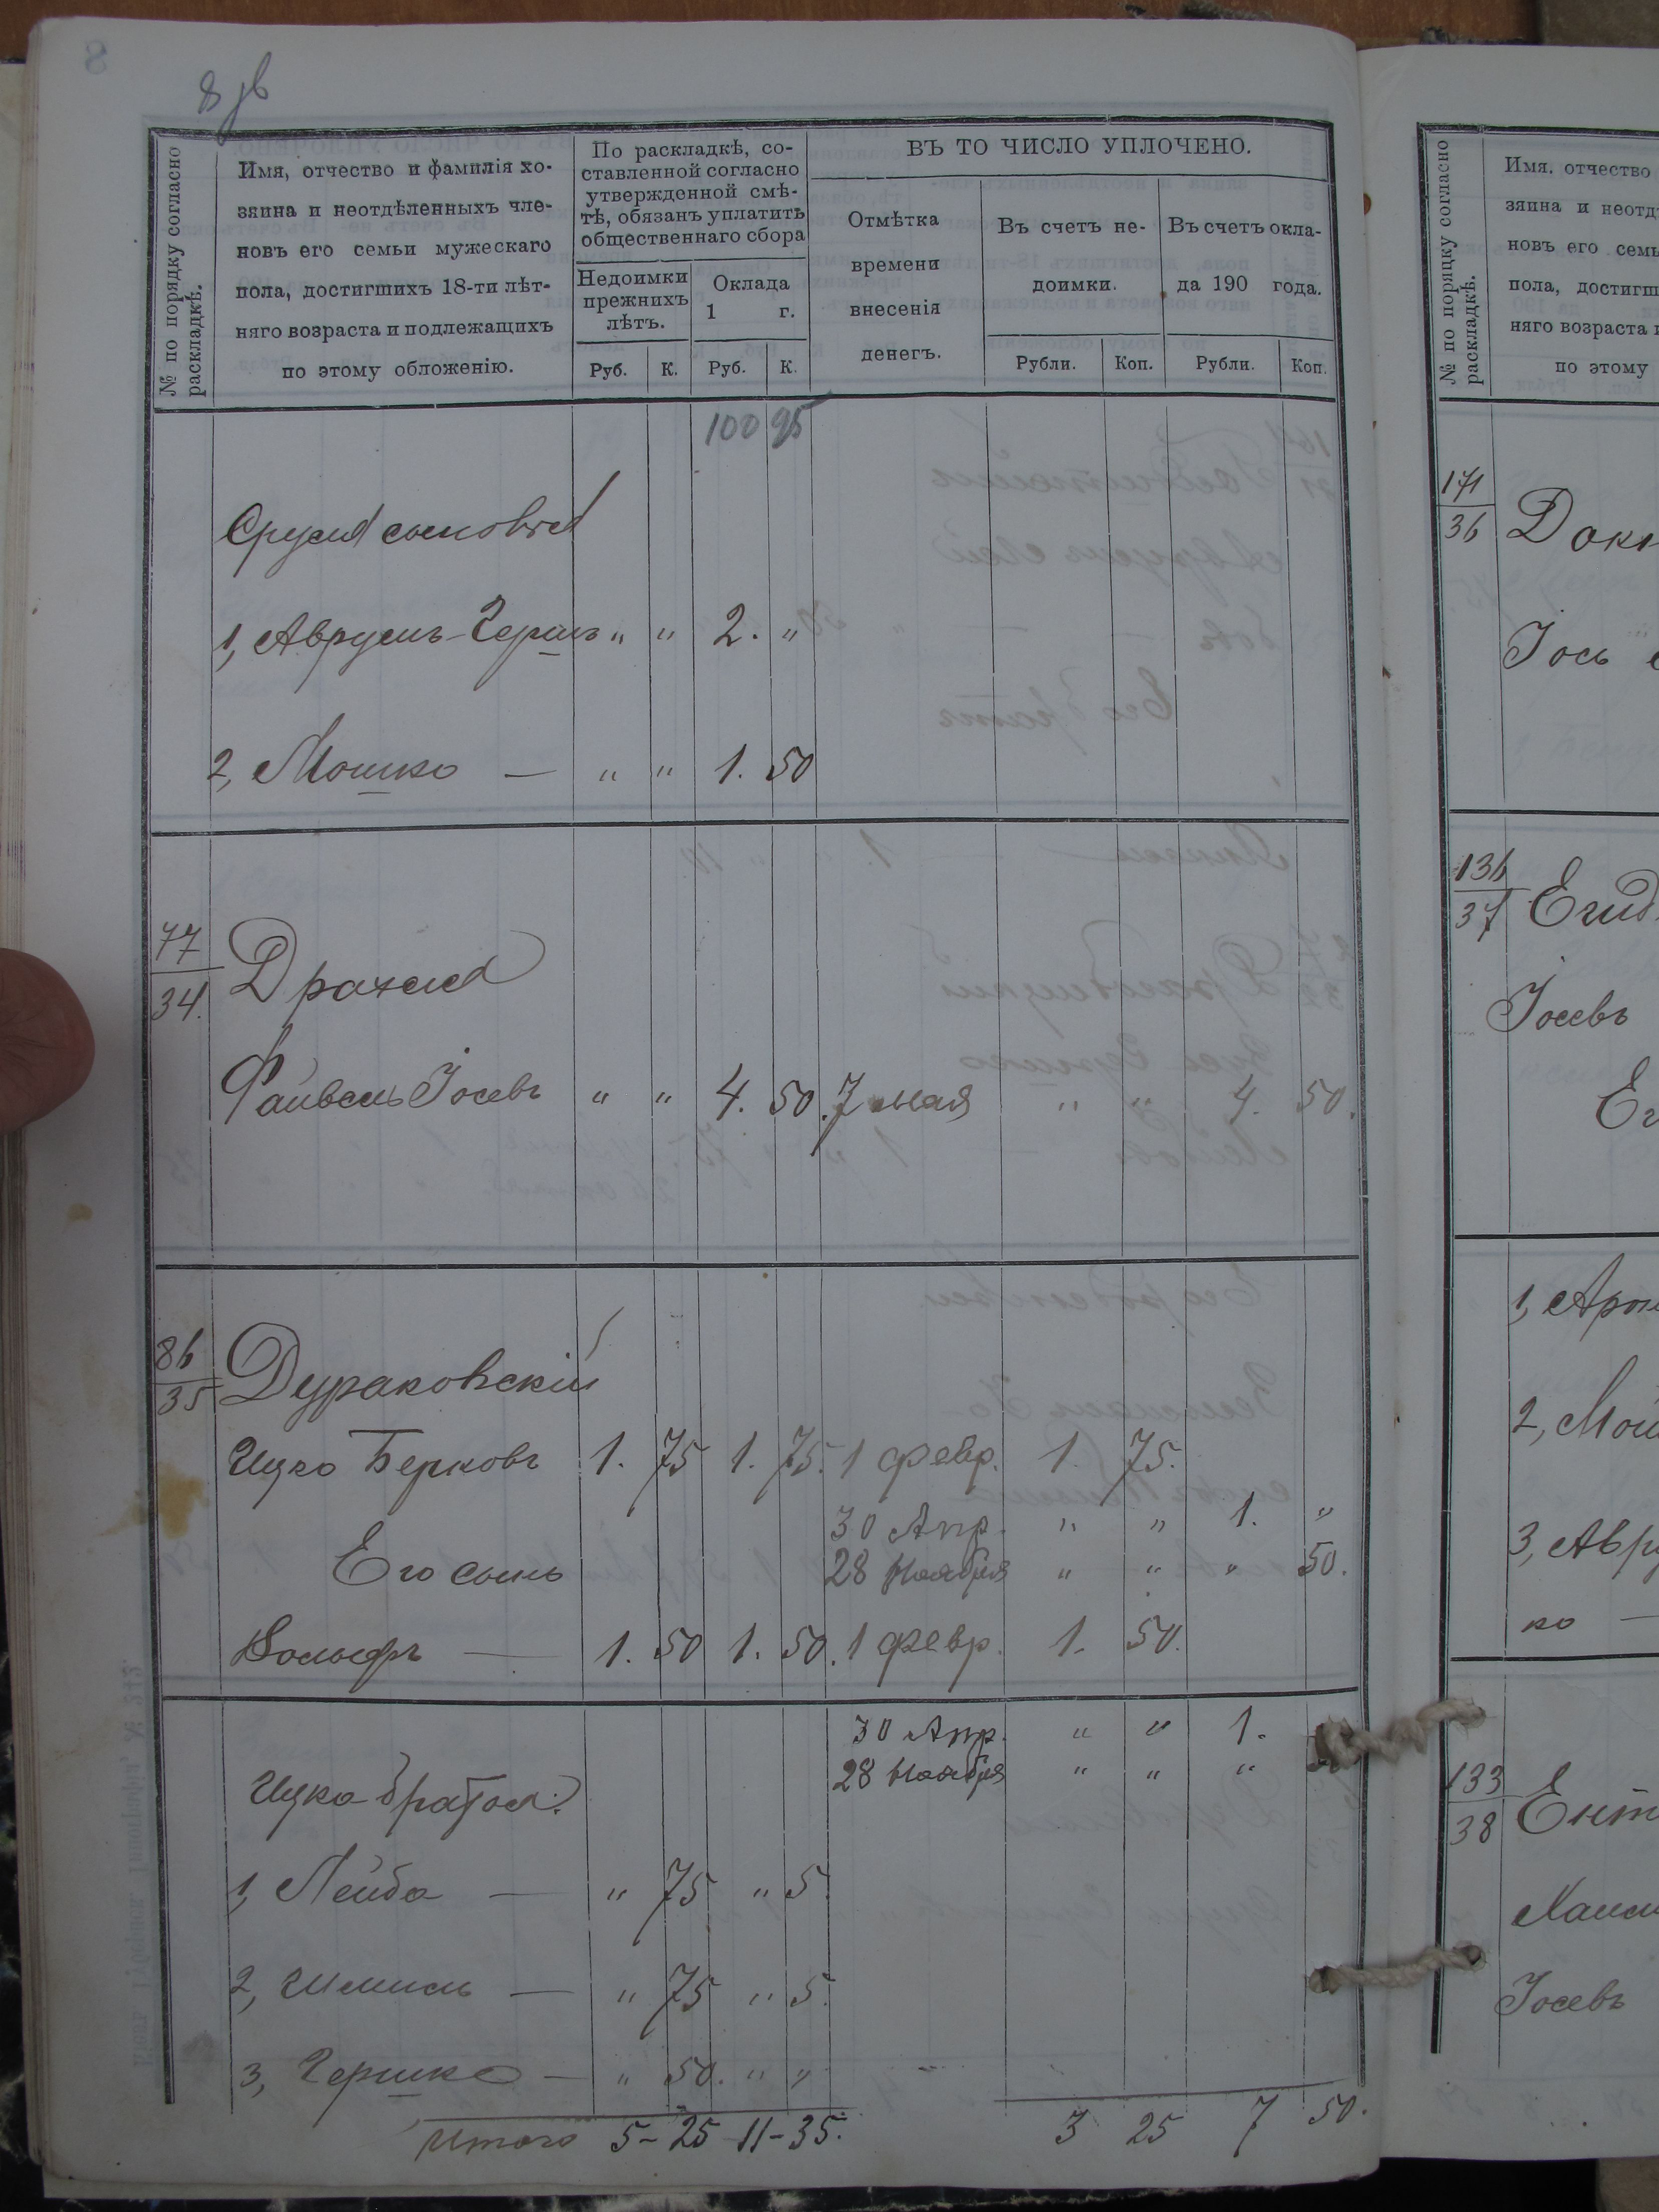 8
№ по порядку согласно раскладкѣ.
Имя, отчество и фамилія хо-
зяина и неотдѣленныхъ чле-
новъ его семьи мужескаго
пола, достигшихъ 18-ти лѣт-
няго возраста и подлежащихъ
по этому обложенію.
По раскладкѣ, со-
ставленной согласно
утвержденной смѣ-
тѣ, обязанъ уплатить
общественнаго сбора
Недоимки
прежнихъ
лѣтъ.
Оклада
1 г.
Руб. К. Руб. К.
ВЪ ТО ЧИСЛО УПЛОЧЕНО.
Отмѣтка
времени
внесенія
денегъ.
Въ счетъ не-
доимки.
Въ счетъ окла-
да 190 года.
Рубли. Коп. Рубли. Коп.
100 95
Сруля сыновья
1, Аврумъ-Гершъ „ „ 2. „
2, Мошко — „ „ 1. 50
77
34.
Драхля
Файвель Іосевъ „ „ 4. 50. 7 мая „ „ 4. 50.
86
35
Дураковскій
Ицко Берковъ 1. 75 1. 75. 1 февр. 1. 75.
30 Апр. „ „ 1. „
Его сынъ 28 Ноября „ „ „ 50.
Вольфъ — 1. 50 1. 50. 1 февр. 1. 50.
30 Апр. „ „ 1.
28 Ноября „ „ „
Ицка братья:
1, Лейба — „ 75 „ 5.
2, Шмиль — „ 75 „ 5.
3, Гершко — „ 50. „ „
Итого 5-25 11-35. 3 25 7 50.
№ по порядку согласно раскладкѣ.
Имя, отчество
зяина и неотд
новъ его семь
пола, достигш
няго возраста и
по этому
171
36
Іось
136
37
Іосевъ
1, Арон
2, Мош
3, Авр
ко —
133
38
Іосевъ